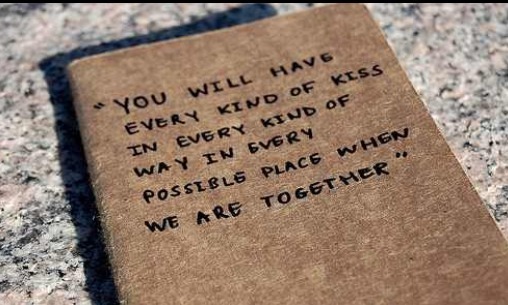 "YOU WILL HAVE
EVERY KIND OF KISS
IN EVERY KIND OF
WAY IN EVERY
POSSIBLE PLACE WHEN
WE ARE TOGETHER"